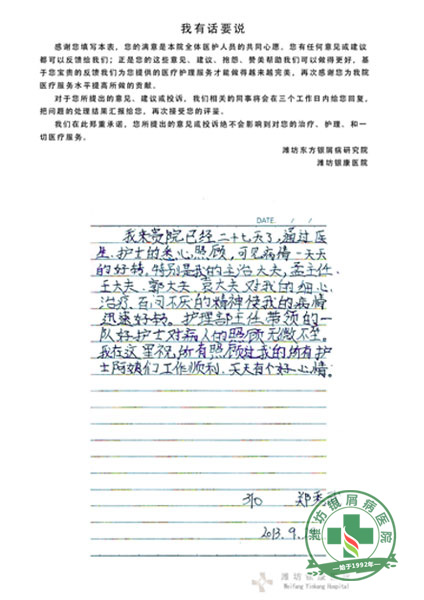 我有话要说
感谢您填写本表，您的满意是本院全体医护人员的共同心愿。您有任何意见或建议
都可以反馈给我们；正是您的这些意见、建议、抱怨、赞美帮助我们可以做得更好，基
于您宝贵的反馈我们为您提供的医疗护理服务才能做得越来越完美，再次感谢您为我院
医疗服务水平提高所做的贡献。
对于您所提出的意见、建议或投诉，我们相关的同事将会在三个工作日内给您回复，
把问题的处理结果汇报给您，再次接受您的评鉴。
我们在此郑重承诺，您所提出的意见或投诉绝不会影响到对您的治疗、护理、和一
切医疗服务。
潍坊东方银屑病研究院
潍坊银康医院
DATE. / /
我来贵院已经二十七天了，通过医
生、护士的悉心照顾，可见病情一天天
的好转。特别是我的主治大夫，孟主任、
王大夫、郭大夫、袁大夫对我的细心
治疗、百问不厌的精神使我的病情
迅速好转。护理部主任带领的一
队好护士对病人的照顾无微不至。
我在这里祝所有照顾过我的所有护
士阿姨们工作顺利、天天有个好心情。
郑
2013.9.
潍坊银屑病医院
始于1992年
潍坊银康
Weifang Yinkang Hospital